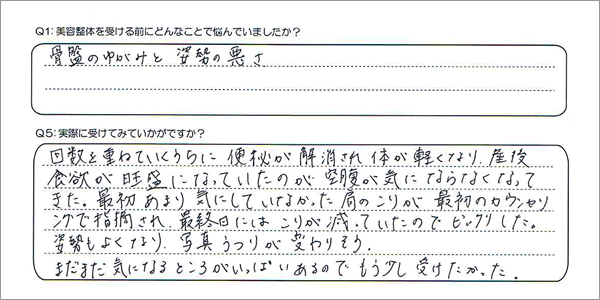 Q1：美容整体を受ける前にどんなことで悩んでいましたか？
骨盤のゆがみと姿勢の悪さ
Q5：実際に受けてみていかがですか？
回数を重ねていくうちに便秘が解消され体が軽くなり、産後
食欲が旺盛になっていたのが空腹が気にならなくなって
きた。最初あまり気にしていなかった肩のこりが最初のカウンセリ
ングで指摘され、最終日にはこりが減っていたのでビックリした。
姿勢もよくなり、写真うつりが変わりそう．
まだまだ気になるところがいっぱいあるのでもう少し受けたかった．